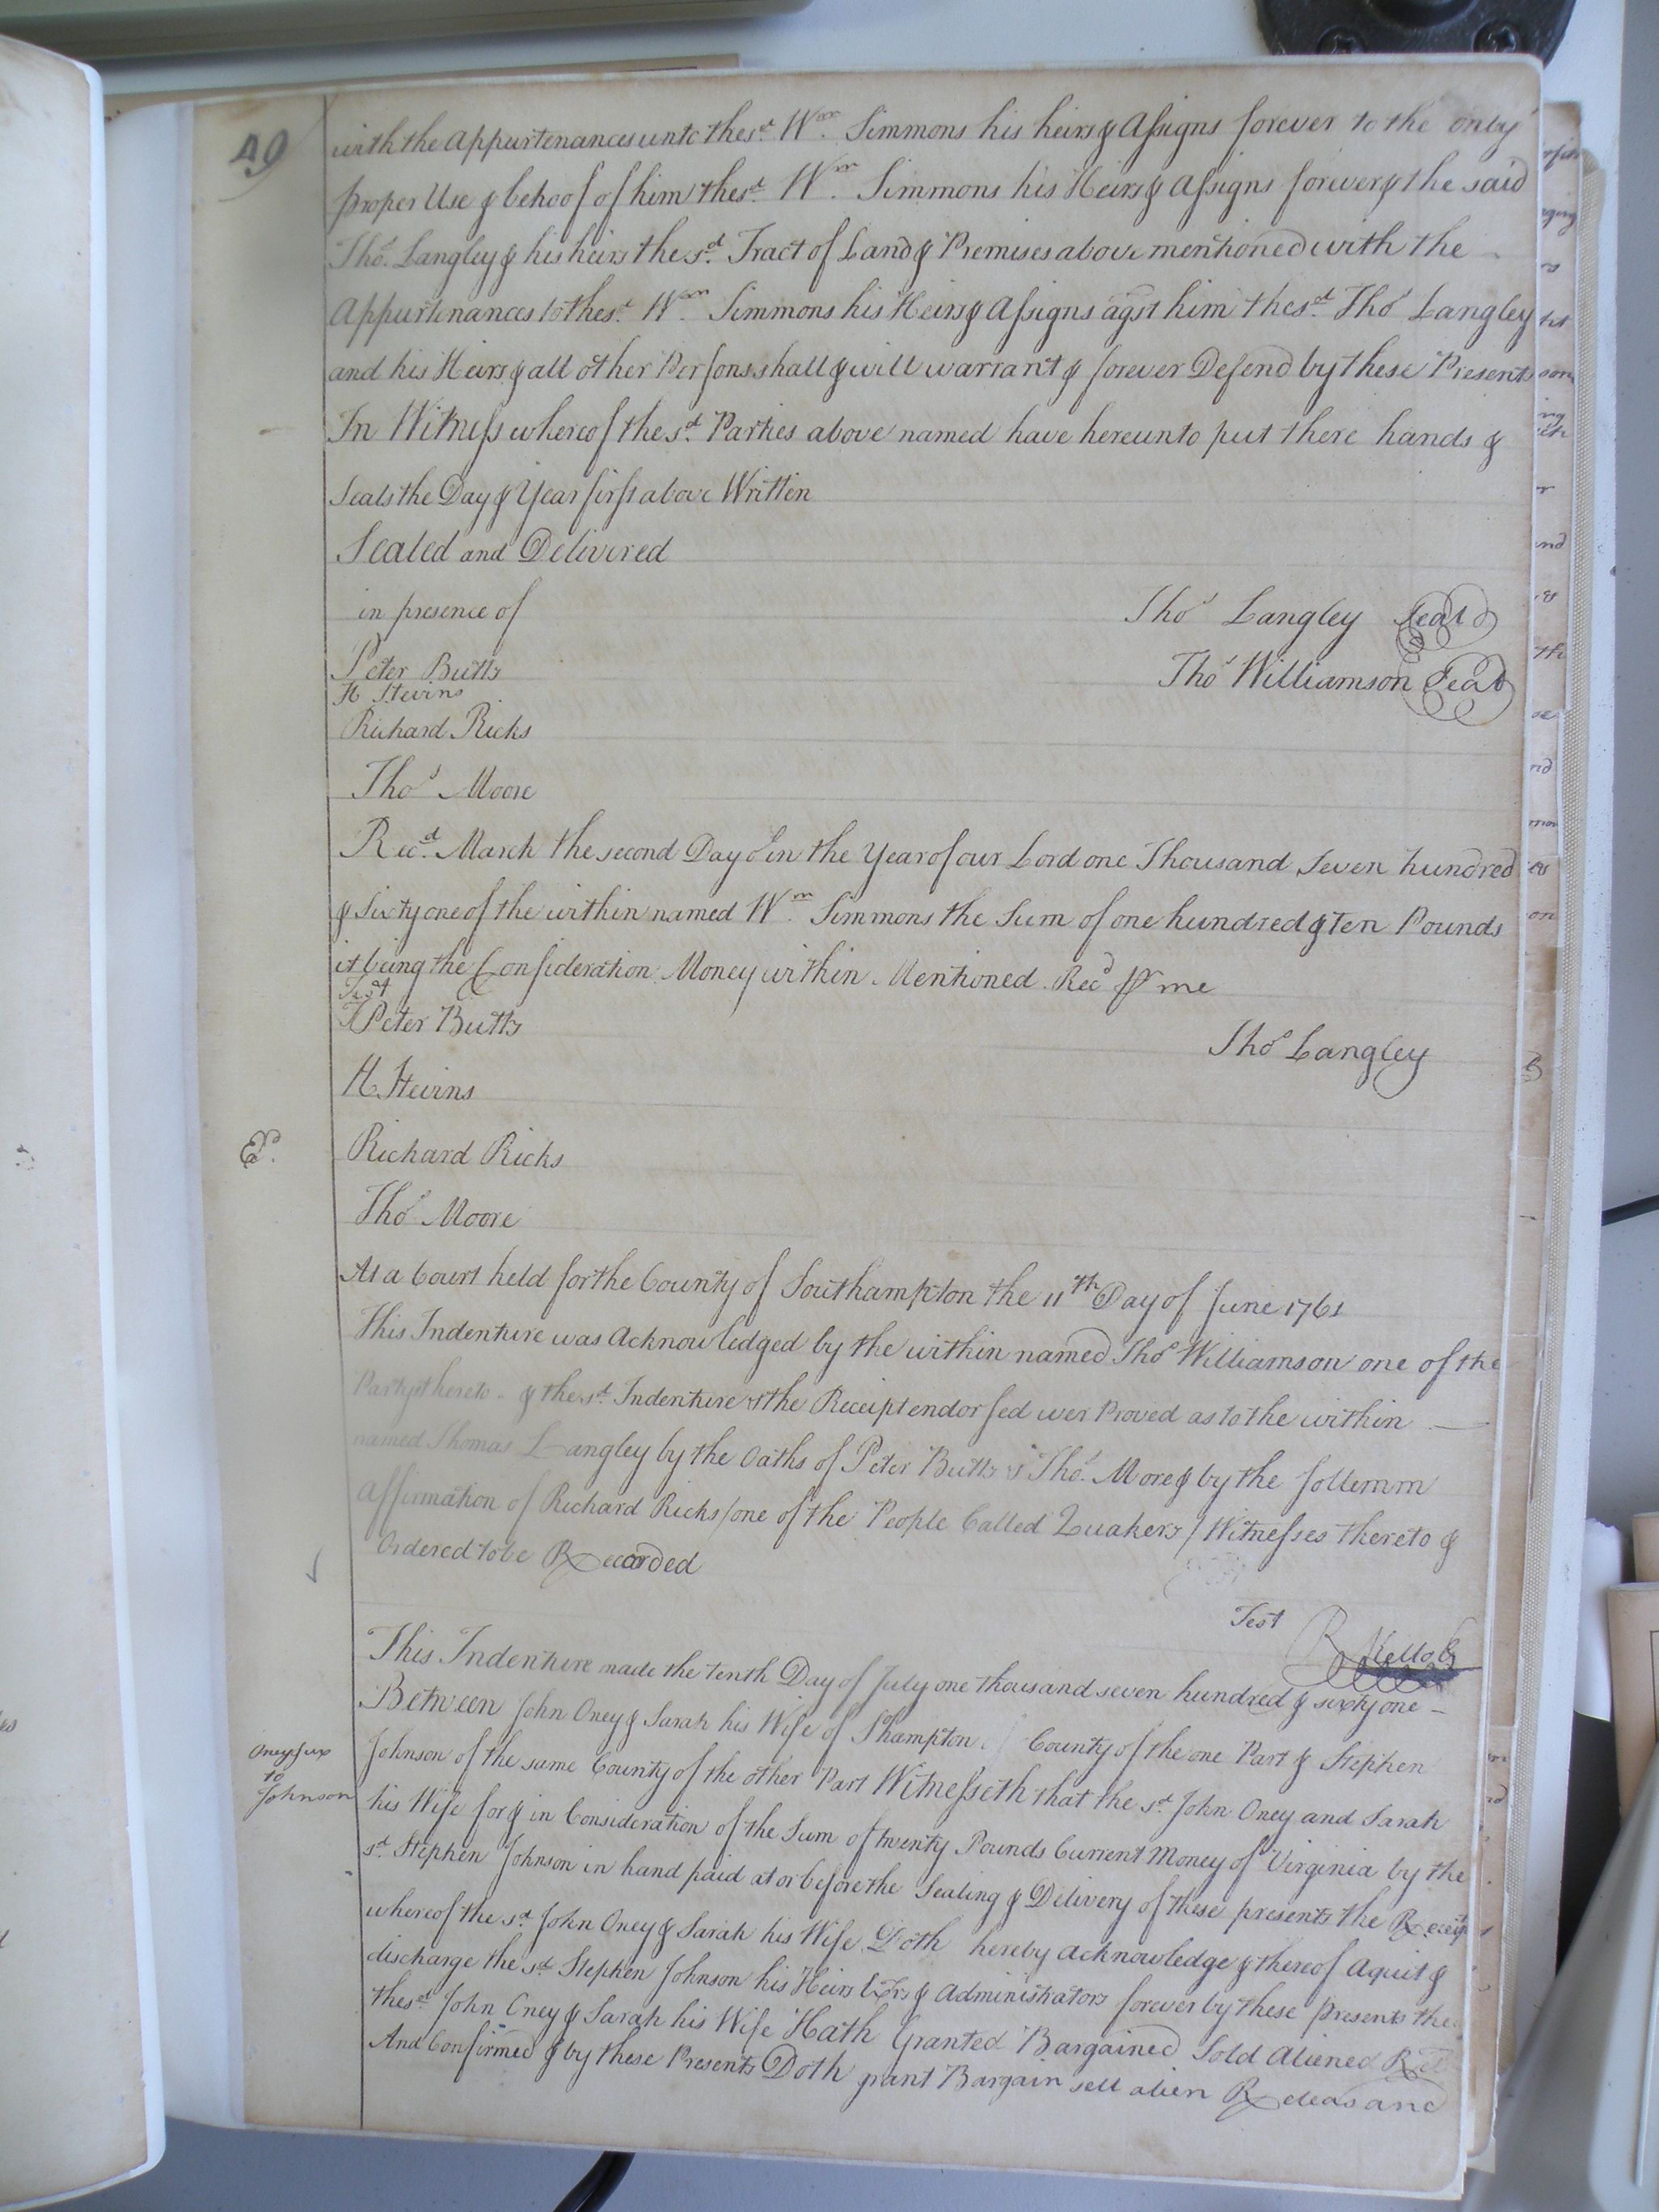 49
with the Appurtenances unto the sd. Wm. Simmons his heirs & Assigns forever to the only
proper Use & behoof of him the sd. Wm. Simmons his Heirs & Assigns forever & the said
Thos. Langley & his heirs the sd. Tract of Land & Premises above mentioned with the
Appurtenances to the sd. Wm. Simmons his Heirs & Assigns agst him the sd. Thos Langley
and his Heirs & all other Persons shall & will warrant & forever Defend by these Presents
In Witness whereof the sd. Parties above named have hereunto put there hands &
Seals the Day & Year first above Written
Sealed and Delivered
in presence of
Thos Langley Seal
Peter Butts
Thos Williamson Seal
H Stevins
Richard Ricks
Thos Moore
Recd. March the second Day in the Year of our Lord one Thousand Seven hundred
& Sixty one of the within named Wm. Simmons the Sum of one hundred & Ten Pounds
it being the Consideration Money within Mentioned Recd pr me
Test
Peter Butts
Thos Langley
H. Stevins
Richard Ricks
Thos Moore
At a Court held for the County of Southampton the 11th Day of June 1761
This Indenture was Acknowledged by the within named Thos Williamson one of the
Partys thereto & the sd. Indenture & the Receipt endorsed wer Proved as to the within
named Thomas Langley by the Oaths of Peter Butts & Thos. More & by the sollemm
Affirmation of Richard Ricks / one of the People Called Quakers / Witnesses thereto &
Ordered to be Recorded
Test
This Indenture made the tenth Day of July one thousand seven hundred & sixty one
Between John Oney & Sarah his Wife of Shampton County of the one Part & Stephen
Oney & ux
to
Johnson
Johnson of the same County of the other Part Witnesseth that the sd. John Oney and Sarah
his Wife for & in Consideration of the Sum of twenty Pounds Current Money of Virginia by the
sd. Stephen Johnson in hand paid at or before the Sealing & Delivery of these presents the Receip
whereof the sd. John Oney & Sarah his Wife Doth hereby Acknowledge & thereof Aquit &
discharge the sd. Stephen Johnson his Heirs Exrs & Administrators forever by these presents the
the sd John Oney & Sarah his Wife Hath Granted Bargained Sold Aliened
And Confirmed & by these Presents Doth grant Bargain sell alien Releas and